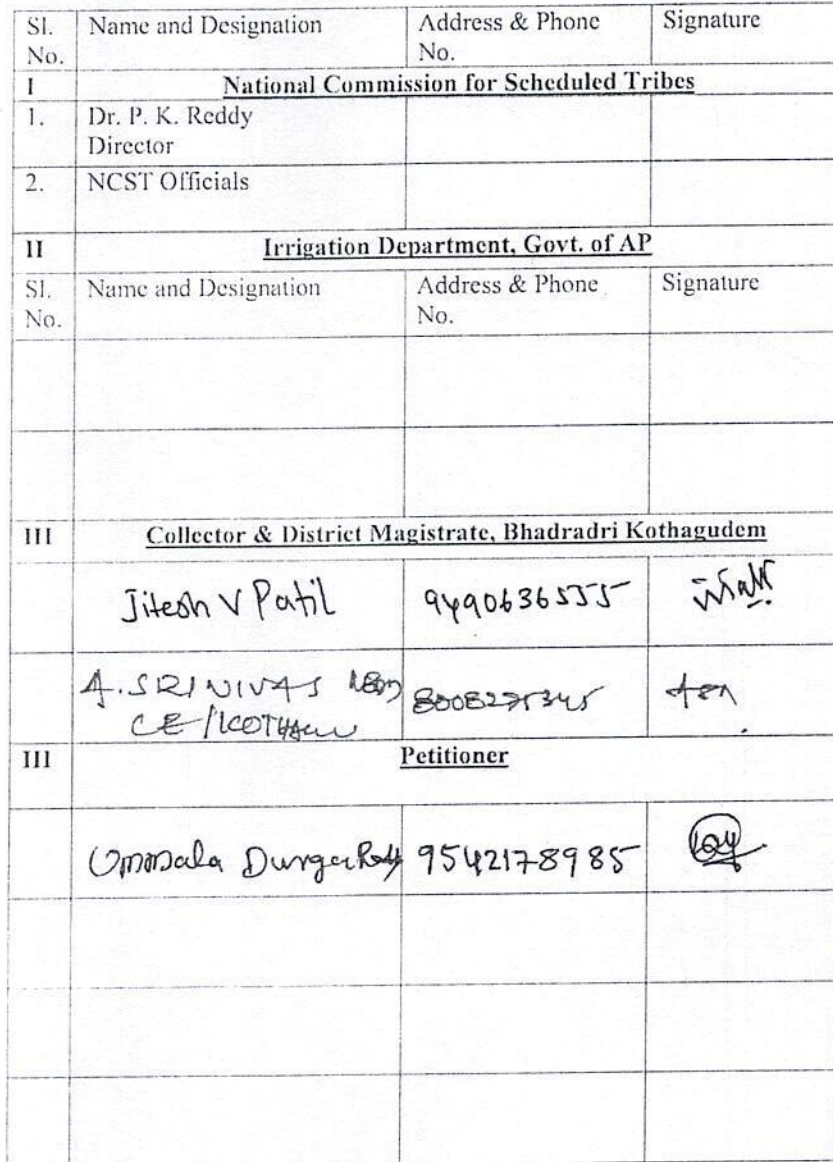 Sl. No. Name and Designation Address & Phone No. Signature
I National Commission for Scheduled Tribes
1. Dr. P. K. Reddy
Director
2. NCST Officials
II Irrigation Department, Govt. of AP
Sl. No. Name and Designation Address & Phone No. Signature
III Collector & District Magistrate, Bhadradri Kothagudem
Jitesh V Patil 9490636555
A. SRINIVAS
CE/
III Petitioner
Ummala Durga 9542178985